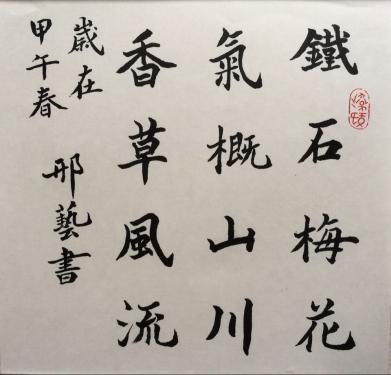 鐵石梅花
氣概山川
香草風流
歲在
甲午春
邢藝書